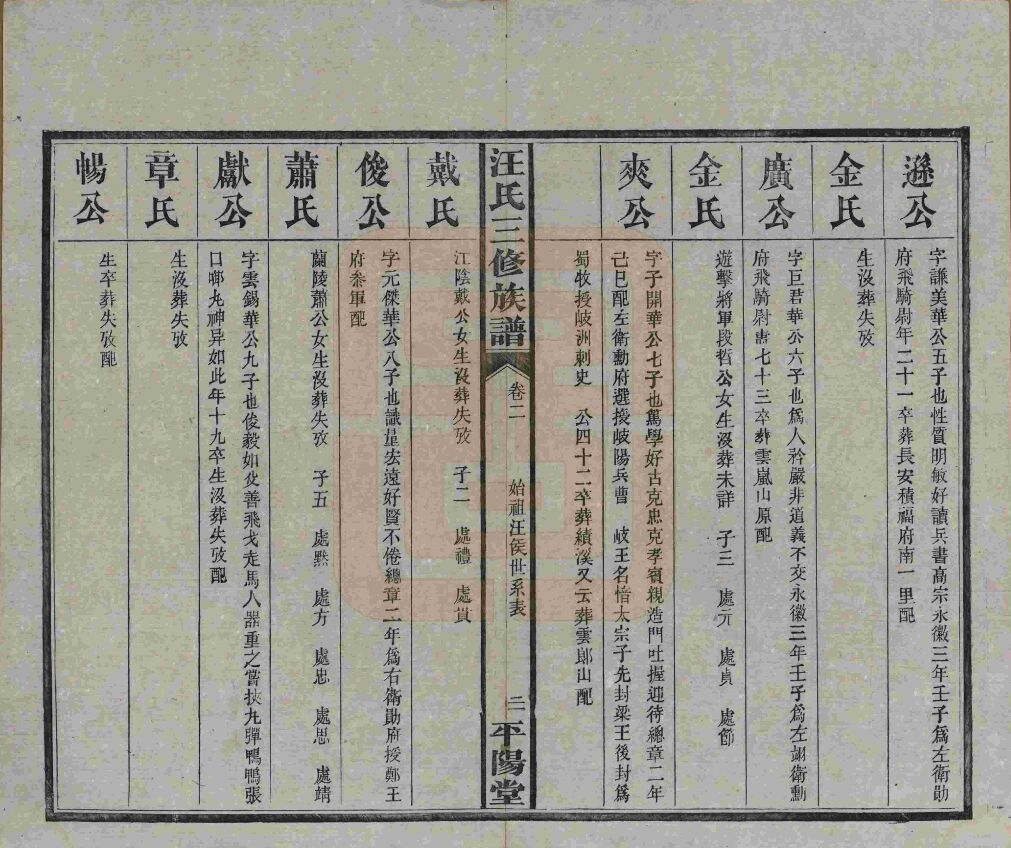 遜公
字謙美華公五子也性質明敏好讀兵書高宗永徽三年壬子為左衛勛
府飛騎尉年二十一卒葬長安積福府南一里配
金氏
生沒葬失攷
廣公
字巨君華公六子也為人矜嚴非道義不交永徽三年壬子為左翊衛勳
府飛騎尉壽七十三卒葬雲嵐山原配
金氏
遊擊將軍段哲公女生沒葬未詳 子三 處元 處貞 處節
爽公
字子開華公七子也篤學好古克忠克孝賓親造門吐握迎待總章二年
己巳配左衛勳府選授岐陽兵曹 岐王名愔太宗子先封梁王後封為
蜀牧授歧洲刺史 公四十二卒葬績溪又云葬雲郎山配
汪氏三修族譜
卷二
始祖汪侯世系表
二
平陽堂
戴氏
江陰戴公女生沒葬失攷 子二 處禮 處貫
俊公
字元傑華公八子也識量宏遠好賢不倦總章二年為右衛勛府授鄭王
府叅軍配
蕭氏
蘭陵蕭公女生沒葬失攷 子五 處默 處方 處忠 處思 處靖
獻公
字雲錫華公九子也俊毅如父善飛戈走馬人器重之嘗挾九彈鴨鴨張
口啣丸神异如此年十九卒生沒葬失攷配
章氏
生沒葬失攷
暢公
生卒葬失攷配